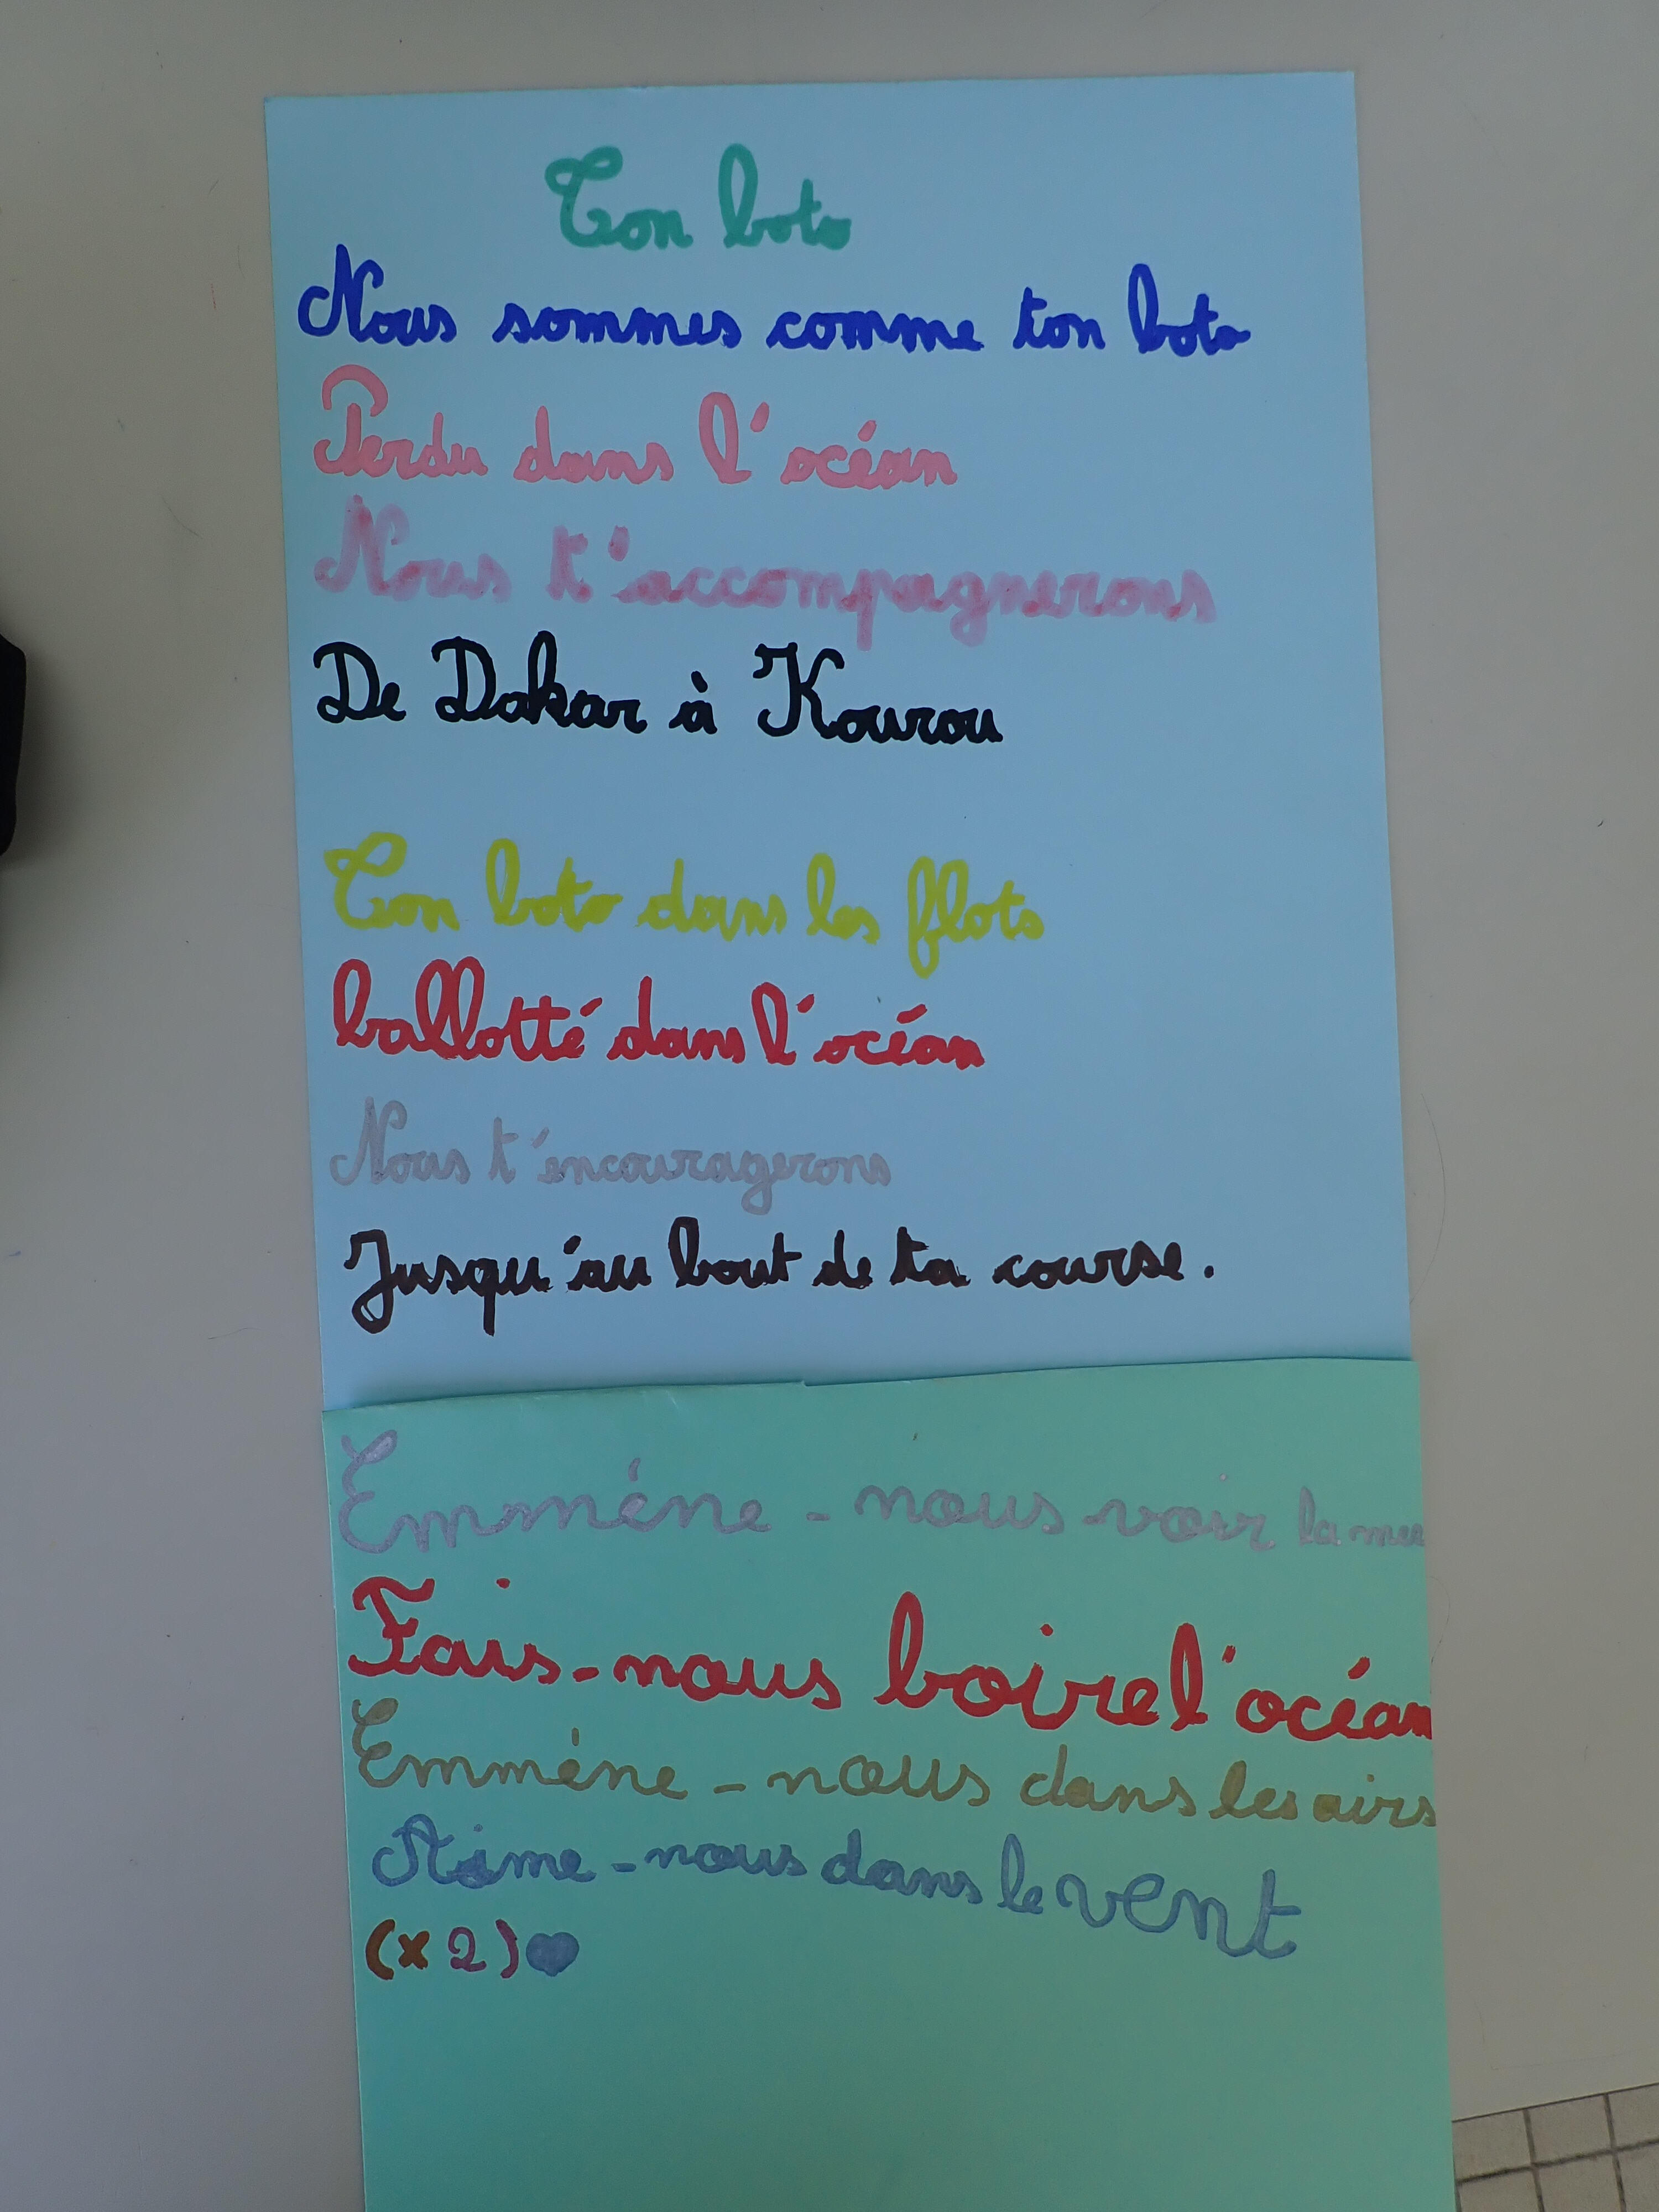 Ton boto
Nous sommes comme ton boto
Perdu dans l'océan
Nous t'accompagnerons
De Dakar à Kourou
Ton boto dans les flots
ballotté dans l'océan
Nous t'encouragerons
Jusqu'au bout de ta course.
Emméne-nous voir la mer
Fais-nous boire l'océan
Emméne-nous dans les airs
Aime-nous dans le vent
(x2)